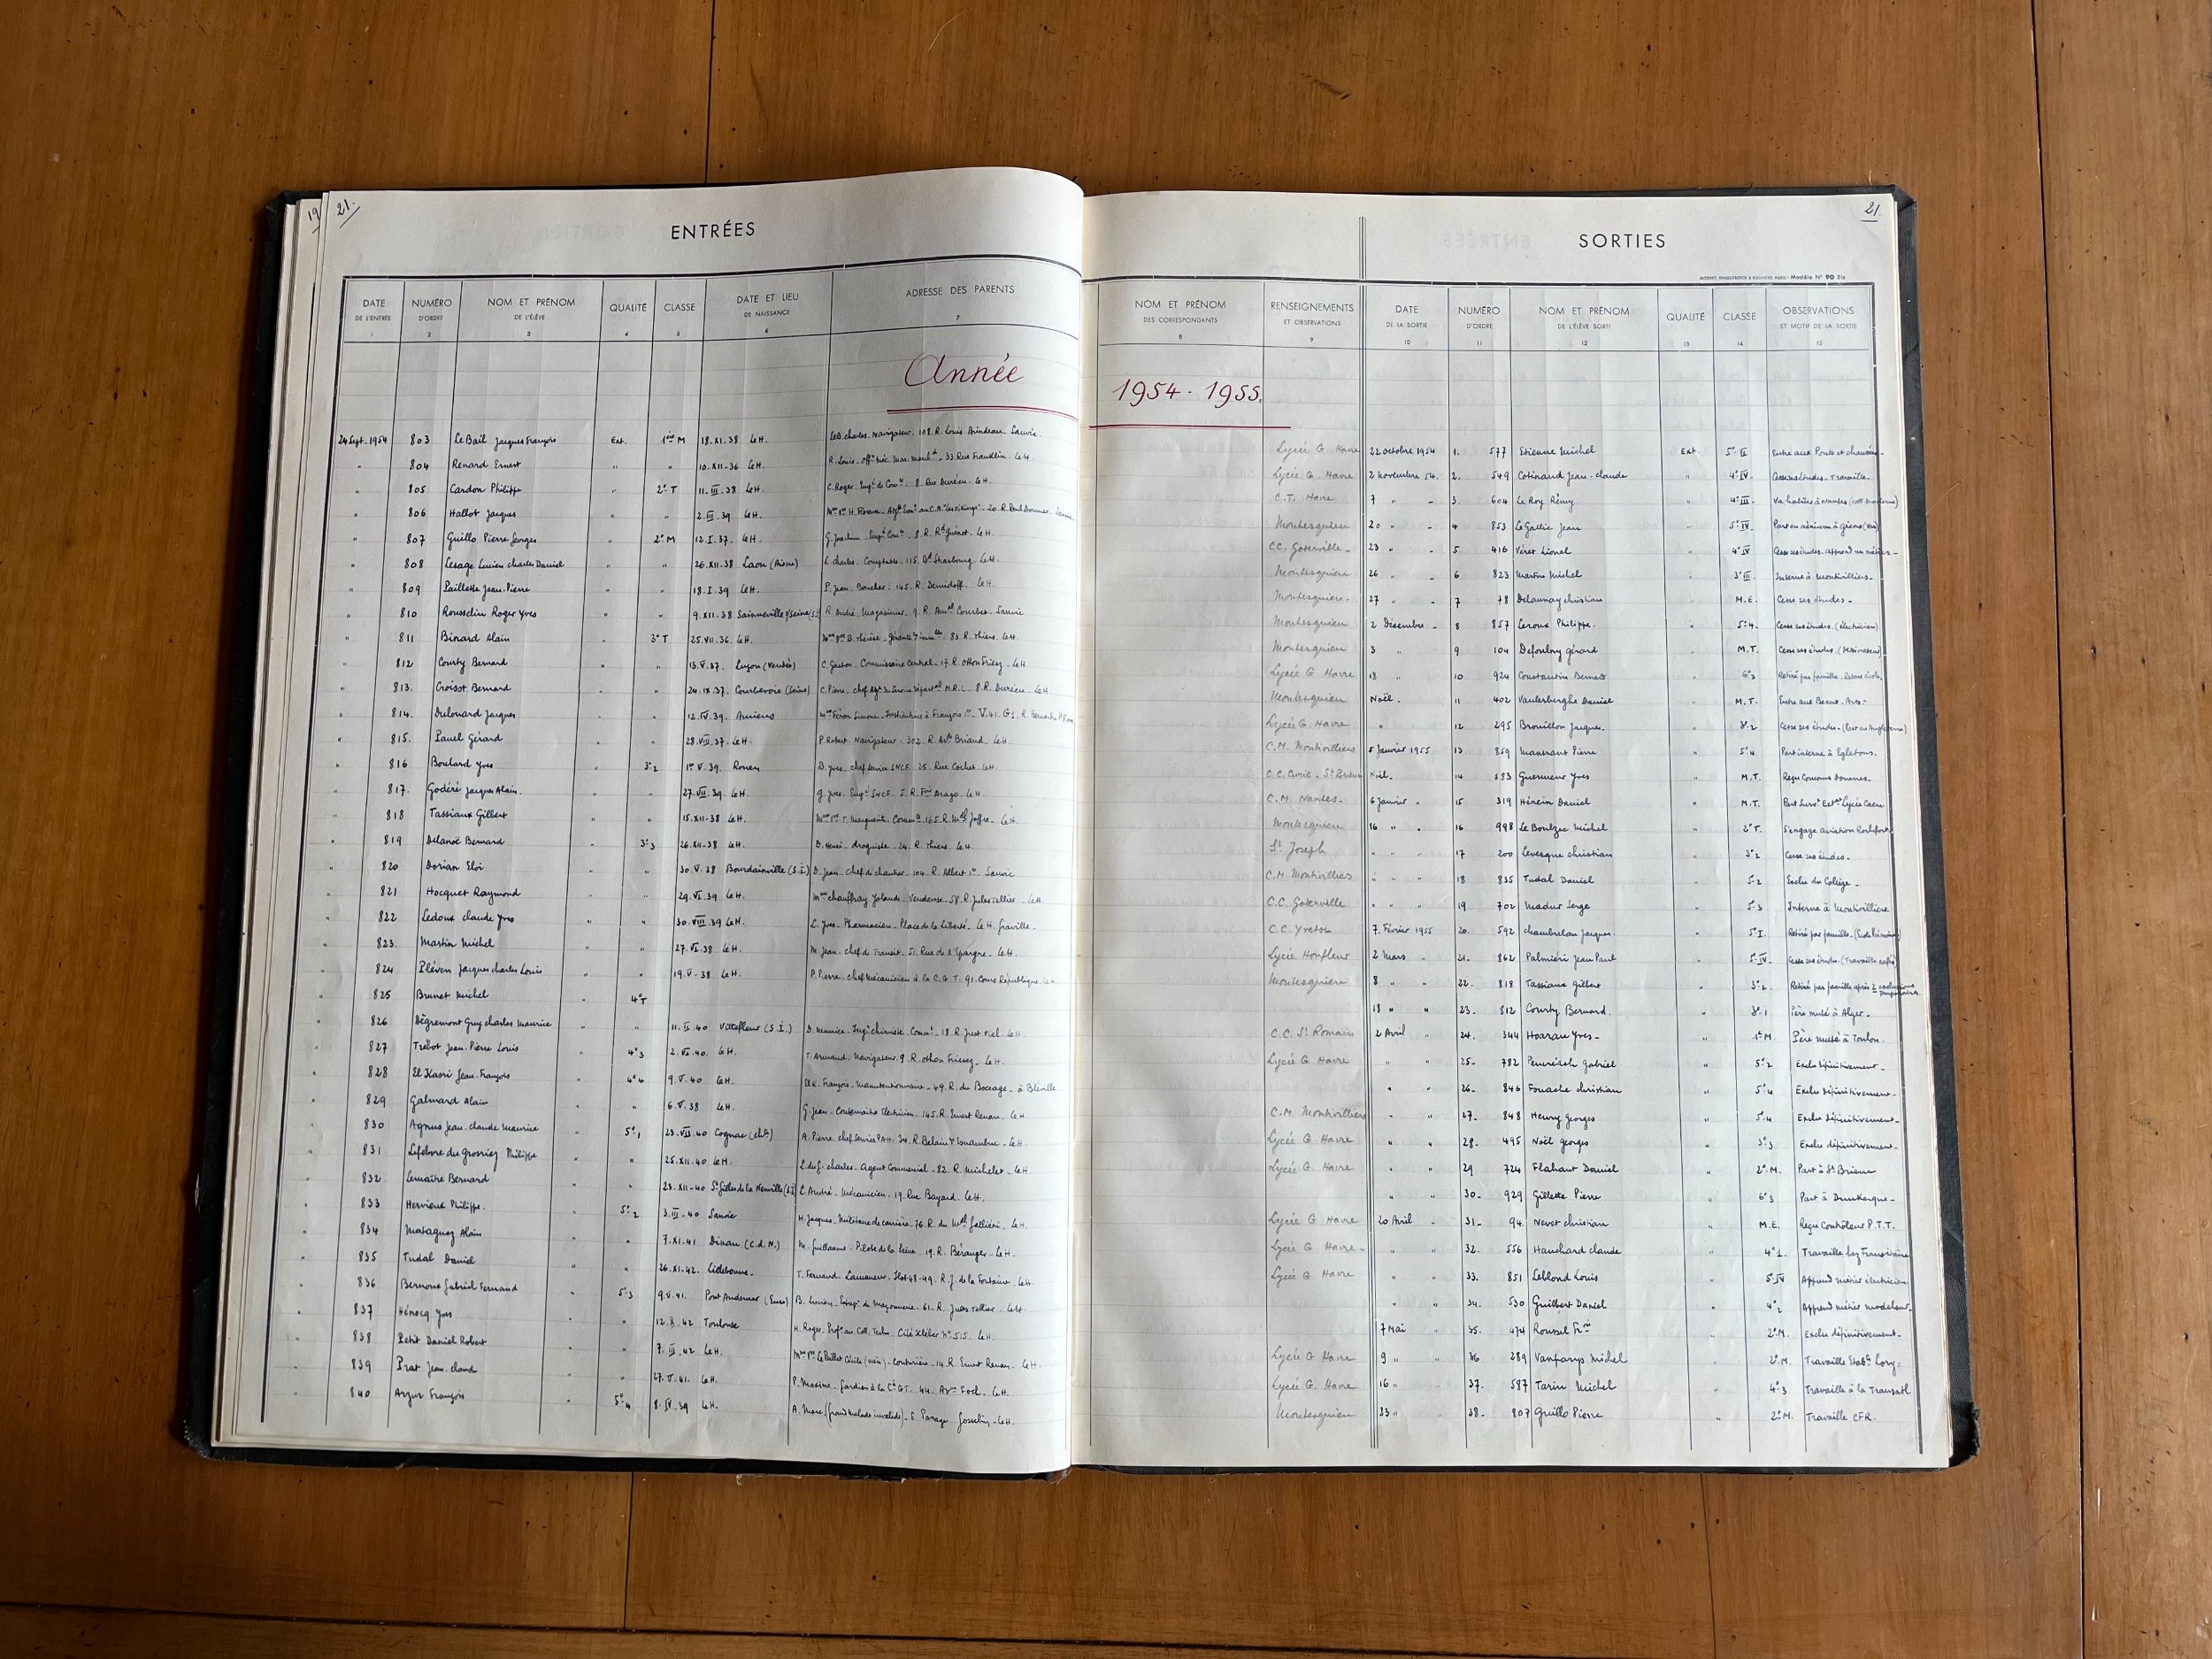 19
21.
ENTRÉES
DATE DE L'ENTRÉE 1 NUMÉRO D'ORDRE 2 NOM ET PRÉNOM DE L'ÉLÈVE 3 QUALITÉ 4 CLASSE 5 DATE ET LIEU DE NAISSANCE 6 ADRESSE DES PARENTS 7
Année
24 Sept. 1954 803 Le Bail Jacques François Ext. 1ère M 18.XI.38 Le H. Charles. Navigateur. 108. R. Louis Sanvic
" 804 Renard Ernest " " 10.XII.36 Le H. R. Louis. 33 Rue Franklin. Le H.
" 805 Cardon Philippe " 2e T 11.III.38 Le H. C. Roger. 8. Rue Le H.
" 806 Hallot Jacques " " 2.III.39 Le H. 20. R. Paul Doumer
" 807 Guillo Pierre Georges " 2e M 12.I.37. Le H. G. Joachim. Le H.
" 808 Lesage Lucien Charles Daniel " " 26.XII.38 Laon (Aisne) L. Charles. Comptable. 115. Bd Strasbourg. Le H.
" 809 Paillette Jean-Pierre " " 18.I.39 Le H. P. Jean. Boucher. 145. R. Demidoff. Le H.
" 810 Rousselin Roger Yves " " 9.XII.38 Sainneville R. André. Magasinier. 9. R. Am. Courbet. Sanvic
" 811 Binard Alain " 3e T 25.VII.36. Le H. 83. R. Thiers. Le H.
" 812 Courty Bernard " " 13.V.37. Luçon (Vendée) C. Gaston. Commissaire Central. 17. R. Othon Friesz. Le H.
" 813. Croisot Bernard " " 24.IX.37. Courbevoie (Seine) C. Pierre. M.R.L. 8. R. Le H.
" 814. Delouard Jacques " " 12.IV.39. Amiens Simone. Institutrice à François 1er
" 815. Pauel Gérard " " 28.VIII.37. Le H. P. Robert. Navigateur. 302. R. Briand. Le H.
" 816 Boulard Yves " 3e2 1er V.39. Rouen B. Yves. chef service SNCF. 25. Rue Cochet. Le H.
" 817. Godéré Jacques Alain. " " 27.VII.39. Le H. G. Yves. SNCF. 5. R. Arago. Le H.
" 818 Tassiaux Gilbert " " 15.XII.38 Le H. 165. R. Mal Joffre. Le H.
" 819 Delanoë Bernard " 3e3 26.XII.38 Le H. D. Henri. droguiste. 24. R. Thiers. Le H.
" 820 Dorian Eloi " " 30.V.38 Bourdainville (S.I.) D. Jean. chef de chantier. 104. R. Albert 1er. Sanvic
" 821 Hocquet Raymond " " 29.VI.39 Le H. Mme Chauffray Yolande. Vendeuse. 58. R. Jules Tellier. Le H.
" 822 Ledoux Claude Yves " " 30.VIII.39 Le H. L. Yves. Pharmacien. Place de la Liberté. Le H. Graville
" 823. Martin Michel " " 27.VI.38 Le H. M. Jean. chef de Transit. 51. Rue de l'Epargne. Le H.
" 824 Pléven Jacques Charles Louis " " 19.V.38 Le H. P. Pierre. chef mécanicien à la C.G.T. 91. Cours République. Le H.
" 825 Brunet Michel " 4e T
" 826 Dégremont Guy Charles Maurice " " 11.II.40 Vittefleur (S.I.) D. Maurice. 18. R. Just Viel. Le H.
" 827 Trébot Jean-Pierre Louis " 4e3 2.VI.40. Le H. T. Armand. Navigateur. 9. R. Othon Friesz. Le H.
" 828 El Kasri Jean-François " 4e4 9.V.40 Le H. François. Manutentionnaire. 49. R. du Bocage. à Bléville
" 829 Galmard Alain " " 6.V.38 Le H. G. Jean. Contremaître électricien. 145. R. Ernest Renan. Le H.
" 830 Agnus Jean-Claude Maurice " 5e1 23.VII.40 Cognac A. Pierre. chef service PAH. 34. R. Le H.
" 831 Lefebvre du Grosriez Philippe " " 25.XII.40 Le H. Charles. Agent Commercial. 82. R. Michelet. Le H.
" 832 Lemaître Bernard " " 23.XII.40 St Gilles de la Neuville (S.I) L. André. Mécanicien. 19. Rue Bayard. Le H.
" 833 Herrioux Philippe. " 5e2 3.III.40 Sanvic H. Jacques. Militaire de carrière. 76. R. du Mal Galliéni. Le H.
" 834 Mataguez Alain " " 7.XI.41 Dinan (C.d.N.) M. Guillaume. Pilote de la Seine. 19. R. Béranger. Le H.
" 835 Tudal Daniel " " 26.XI.42. Lillebonne. T. Fernand. Lamaneur. Ilot 48-49. R. J. de la Fontaine. Le H.
" 836 Bernoux Gabriel Fernand " 5e3 9.V.41. Pont Audemer (Eure) B. Lucien. de Maçonnerie. 61. R. Jules Tellier. Le H.
" 837 Hénocq Yves " " 12.X.42 Toulouse H. Roger. Prof. au Coll. Techn. Cité Kléber N° 515. Le H.
" 838 Petit Daniel Robert " " 7.III.42 Le H. Couturière. 14. R. Ernest Renan. Le H.
" 839 Prat Jean-Claud " " 27.V.41. Le H. P. Maxime. Gardien à la Cie G.T. 44. Foch. Le H.
" 840 Arzur François " 5e4 8.IV.39 Le H. A. Marc (grand malade invalide). 6. Passage Gosselin. Le H.
21.
SORTIES
Modèle N° 90 Bis
NOM ET PRÉNOM DES CORRESPONDANTS 8 RENSEIGNEMENTS ET OBSERVATIONS 9 DATE DE LA SORTIE 10 NUMÉRO D'ORDRE 11 NOM ET PRÉNOM DE L'ÉLÈVE SORTI 12 QUALITÉ 13 CLASSE 14 OBSERVATIONS ET MOTIF DE LA SORTIE 15
1954 - 1955.
Lycée G. Havre 22 octobre 1954 1. 577 Etienne Michel Ext. 5e II Entre aux Ponts et chaussées
Lycée G. Havre 2 novembre 54. 2. 549 Cotinaud Jean-Claude " 4e IV Cesse ses études. Travaille.
C.T. Havre 7 " - 3. 604 Le Roy Rémy " 4e III Va habiter à Nantes (coll. moderne)
Montesquieu 20 " - 4 853 Le Gallic Jean " 5e IV Part en aérium à
C.C. Goderville 23 " - 5 416 Véret Lionel " 4e IV Cesse ses études. apprend un métier
Montesquieu 26 " - 6 823 Martin Michel " 3e III Interne à Montivilliers
Montesquieu. 27 " - 7 78 Delaunay Christian " M.E. Cesse ses études.
Montesquieu 2 Décembre - 8 857 Leroux Philippe. " 5e4. Cesse ses études. (électricien)
Montesquieu 3 " 9 104 Defoulny Gérard " M.T. Cesse ses études. (Dessinateur)
Lycée G. Havre 18 " 10 924 Constantin Bernard " 6e3 Retiré par famille.
Montesquieu Noël. 11 402 Vanlerberghe Daniel " M.T. Entre aux Beaux-Arts.
Lycée G. Havre " 12 295 Brouillon Jacques. " 3e2 Cesse ses études. (Part en Angleterre)
C.M. Montivilliers 5 Janvier 1955 13 859 Mantrant Pierre " 5e4 Part interne à Egletons.
C.C. Civic. St Brieuc Noël. 14 583 Guermeur Yves " M.T. Reçu Concours Douanes.
C.M. Nantes. 6 Janvier " 15 319 Hénein Daniel " M.T. Part Surv. Ext. Lycée Caen
Montesquieu 16 " " 16 998 Le Boulzec Michel " 2e T. S'engage aviation Rochefort
St Joseph " " 17 200 Levesque Christian " 3e2 Cesse ses études.
C.M. Montivilliers " " 18 835 Tudal Daniel " 5e2 Exclu du Collège.
C.C. Goderville " " 19 702 Madur Serge " 5e3 Interne à Montivilliers.
C.C. Yvetot 7. Février 1955 20. 592 Chambrelan Jacques. " 5e I. Retiré par famille. (Ecole Primaire)
Lycée Honfleur 2 Mars " 21. 862 Palmiéri Jean Paul " 5e IV. Cesse ses études.
Montesquieu 8 " " 22. 818 Tassiaux Gilbert " 3e2. Retiré par famille après 2 exclusions temporaires
18 " " 23. 812 Courty Bernard. " 3e1 Père muté à Alger.
C.C. St Romain 2 Avril " 24. 344 Hoarau Yves " 1e M. Père muté à Toulon.
Lycée G. Havre " " 25. 782 Gabriel " 5e2 Exclu définitivement.
" " 26. 846 Fouache Christian " 5e4 Exclu définitivement.
C.M. Montivilliers " " 27. 848 Henry Georges " 5e4 Exclu définitivement.
Lycée G. Havre " " 28. 495 Noël Georges " 3e3 Exclu définitivement.
Lycée G. Havre " " 29 724 Flahaut Daniel " 2e M. Part à St Brieuc
" " 30. 929 Gillette Pierre " 6e3 Part à Dunkerque.
Lycée G. Havre 20 Avril " 31. 94. Nevet Christian " M.E. Reçu Contrôleur P.T.T.
Lycée G. Havre. " " 32. 556 Hauchard Claude " 4e1. Travaille
Lycée G. Havre " " 33. 851 Leblond Louis " 5e IV Apprend métier électricien
" " 34. 530 Guilbert Daniel " 4e2 Apprend métier modeleur.
7 Mai " 35. 474 Roussel " 2e M. Exclu définitivement.
Lycée G Havre 9 " " 36 289 Vanparys Michel " 2e M. Travaille
Lycée G. Havre 16 " " 37. 587 Tarin Michel " 4e3 Travaille à la Transatl.
Montesquieu 23 " " 38. 807 Guillo Pierre " 2e M. Travaille CFR.